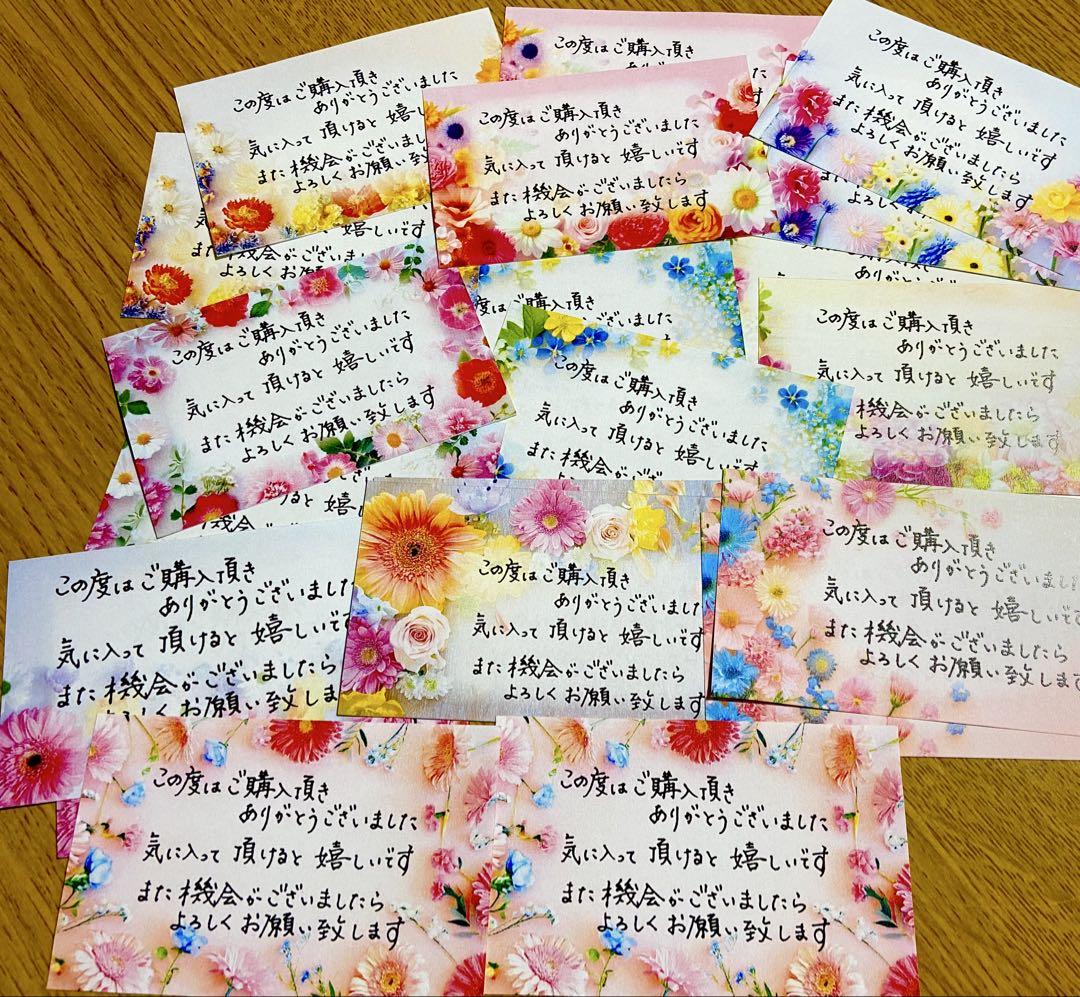 この度はご購入頂き
ありがとうございました
気に入って頂けると嬉しいです
また機会がございましたら
よろしくお願い致します
この度はご購入頂き
ありが
この度はご購入頂き
ありがとうございました
気に入って頂けると嬉しいです
また機会がございましたら
よろしくお願い致します
この度はご購入頂き
ありがとうございました
気に入って頂けると嬉しいです
また機会がございましたら
よろしくお願い致します
嬉しいです
また機会がございま
よろしくお願い
よろしくお願い致します
ありがとうございました
この度はご購入頂き
ありがとうございました
気に入って頂けると嬉しいです
また機会がございましたら
よろしくお願い致します
度はご購入頂き
ございました
この度はご購入頂き
ありがとうございました
気に入って頂けると嬉しいです
また機会がございま
この度はご購入頂き
ありがとうございました
気に入って頂けると嬉しいです
機会がございましたら
よろしくお願い致します
頂けると嬉し
機会
この度はご購入頂き
ありがとうございました
気に入って頂けると嬉しいです
また機会がございましたら
よろしくお願い致しま
この度はご購入頂き
ありがとうございました
気に入って頂けると嬉しいです
また機会がございましたら
よろしくお願い致します
この度はご購入頂き
ありがとうございました
気に入って頂けると嬉しいです
また機会がございましたら
よろしくお願い致します
この度はご購入頂き
ありがとうございました
気に入って頂けると嬉しいです
また機会がございましたら
よろしくお願い致します
この度はご購入頂き
ありがとうございました
気に入って頂けると嬉しいです
また機会がございましたら
よろしくお願い致します